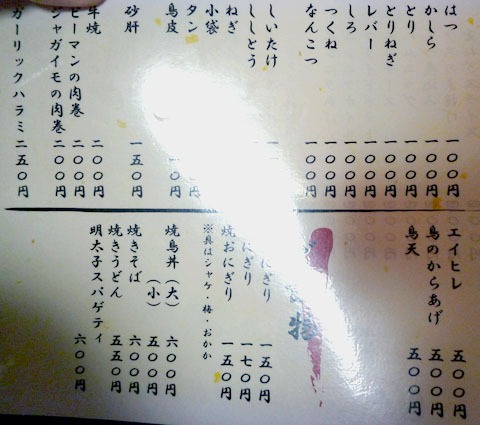 はつ 一〇〇円
かしら 一〇〇円
とり 一〇〇円
とりねぎ 一〇〇円
レバー 一〇〇円
しろ 一〇〇円
つくね 一〇〇円
なんこつ 一〇〇円
しいたけ
ししとう
ねぎ
小袋
タン
鳥皮 一〇〇円
砂肝 一五〇円
牛焼 二〇〇円
ピーマンの肉巻 二〇〇円
ジャガイモの肉巻 二〇〇円
ガーリックハラミ 二五〇円
エイヒレ 五〇〇円
鳥のからあげ 五〇〇円
鳥天 五〇〇円
にぎり 一五〇円
にぎり 一七〇円
焼おにぎり 一五〇円
※具はシャケ・梅・おかか
焼鳥丼(大) 六〇〇円
(小) 五〇〇円
焼きそば 六〇〇円
焼きうどん 五五〇円
明太子スパゲティ 六〇〇円